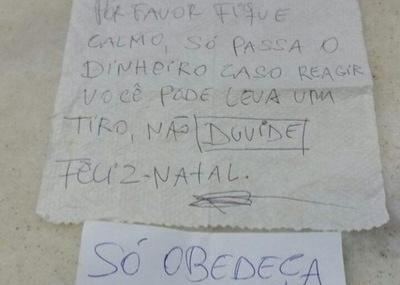 POR FAVOR FIQUE
CALMO, SÓ PASSA O
DINHEIRO CASO REAGIR
VOCÊ PODE LEVA UM
TIRO, NÃO DUVIDE
FELIZ-NATAL.
SÓ OBEDEÇA